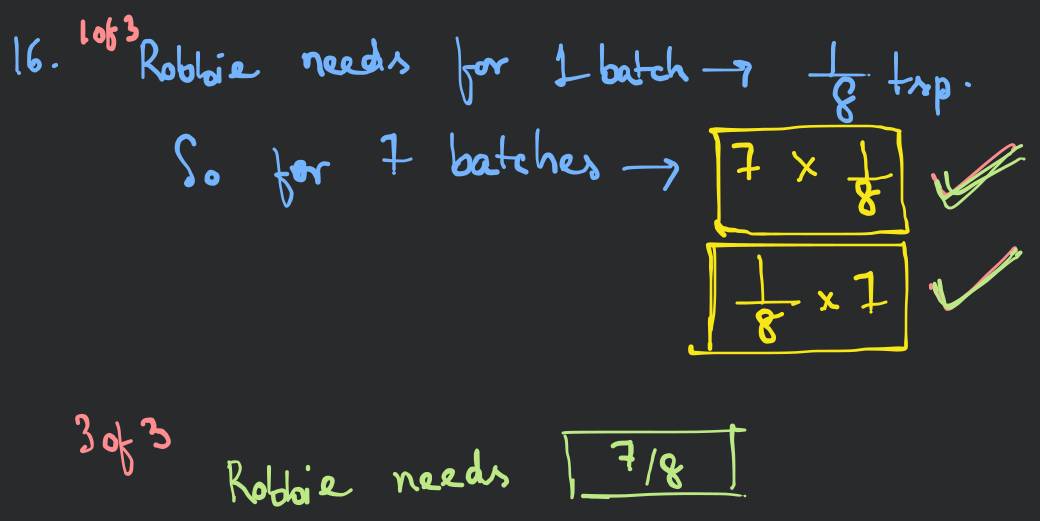 16. 1 of 3 Robbie needs for 1 batch → 1/8 tsp.
So for 7 batches → 7 x 1/8
1/8 x 7
3 of 3
Robbie needs 7/8